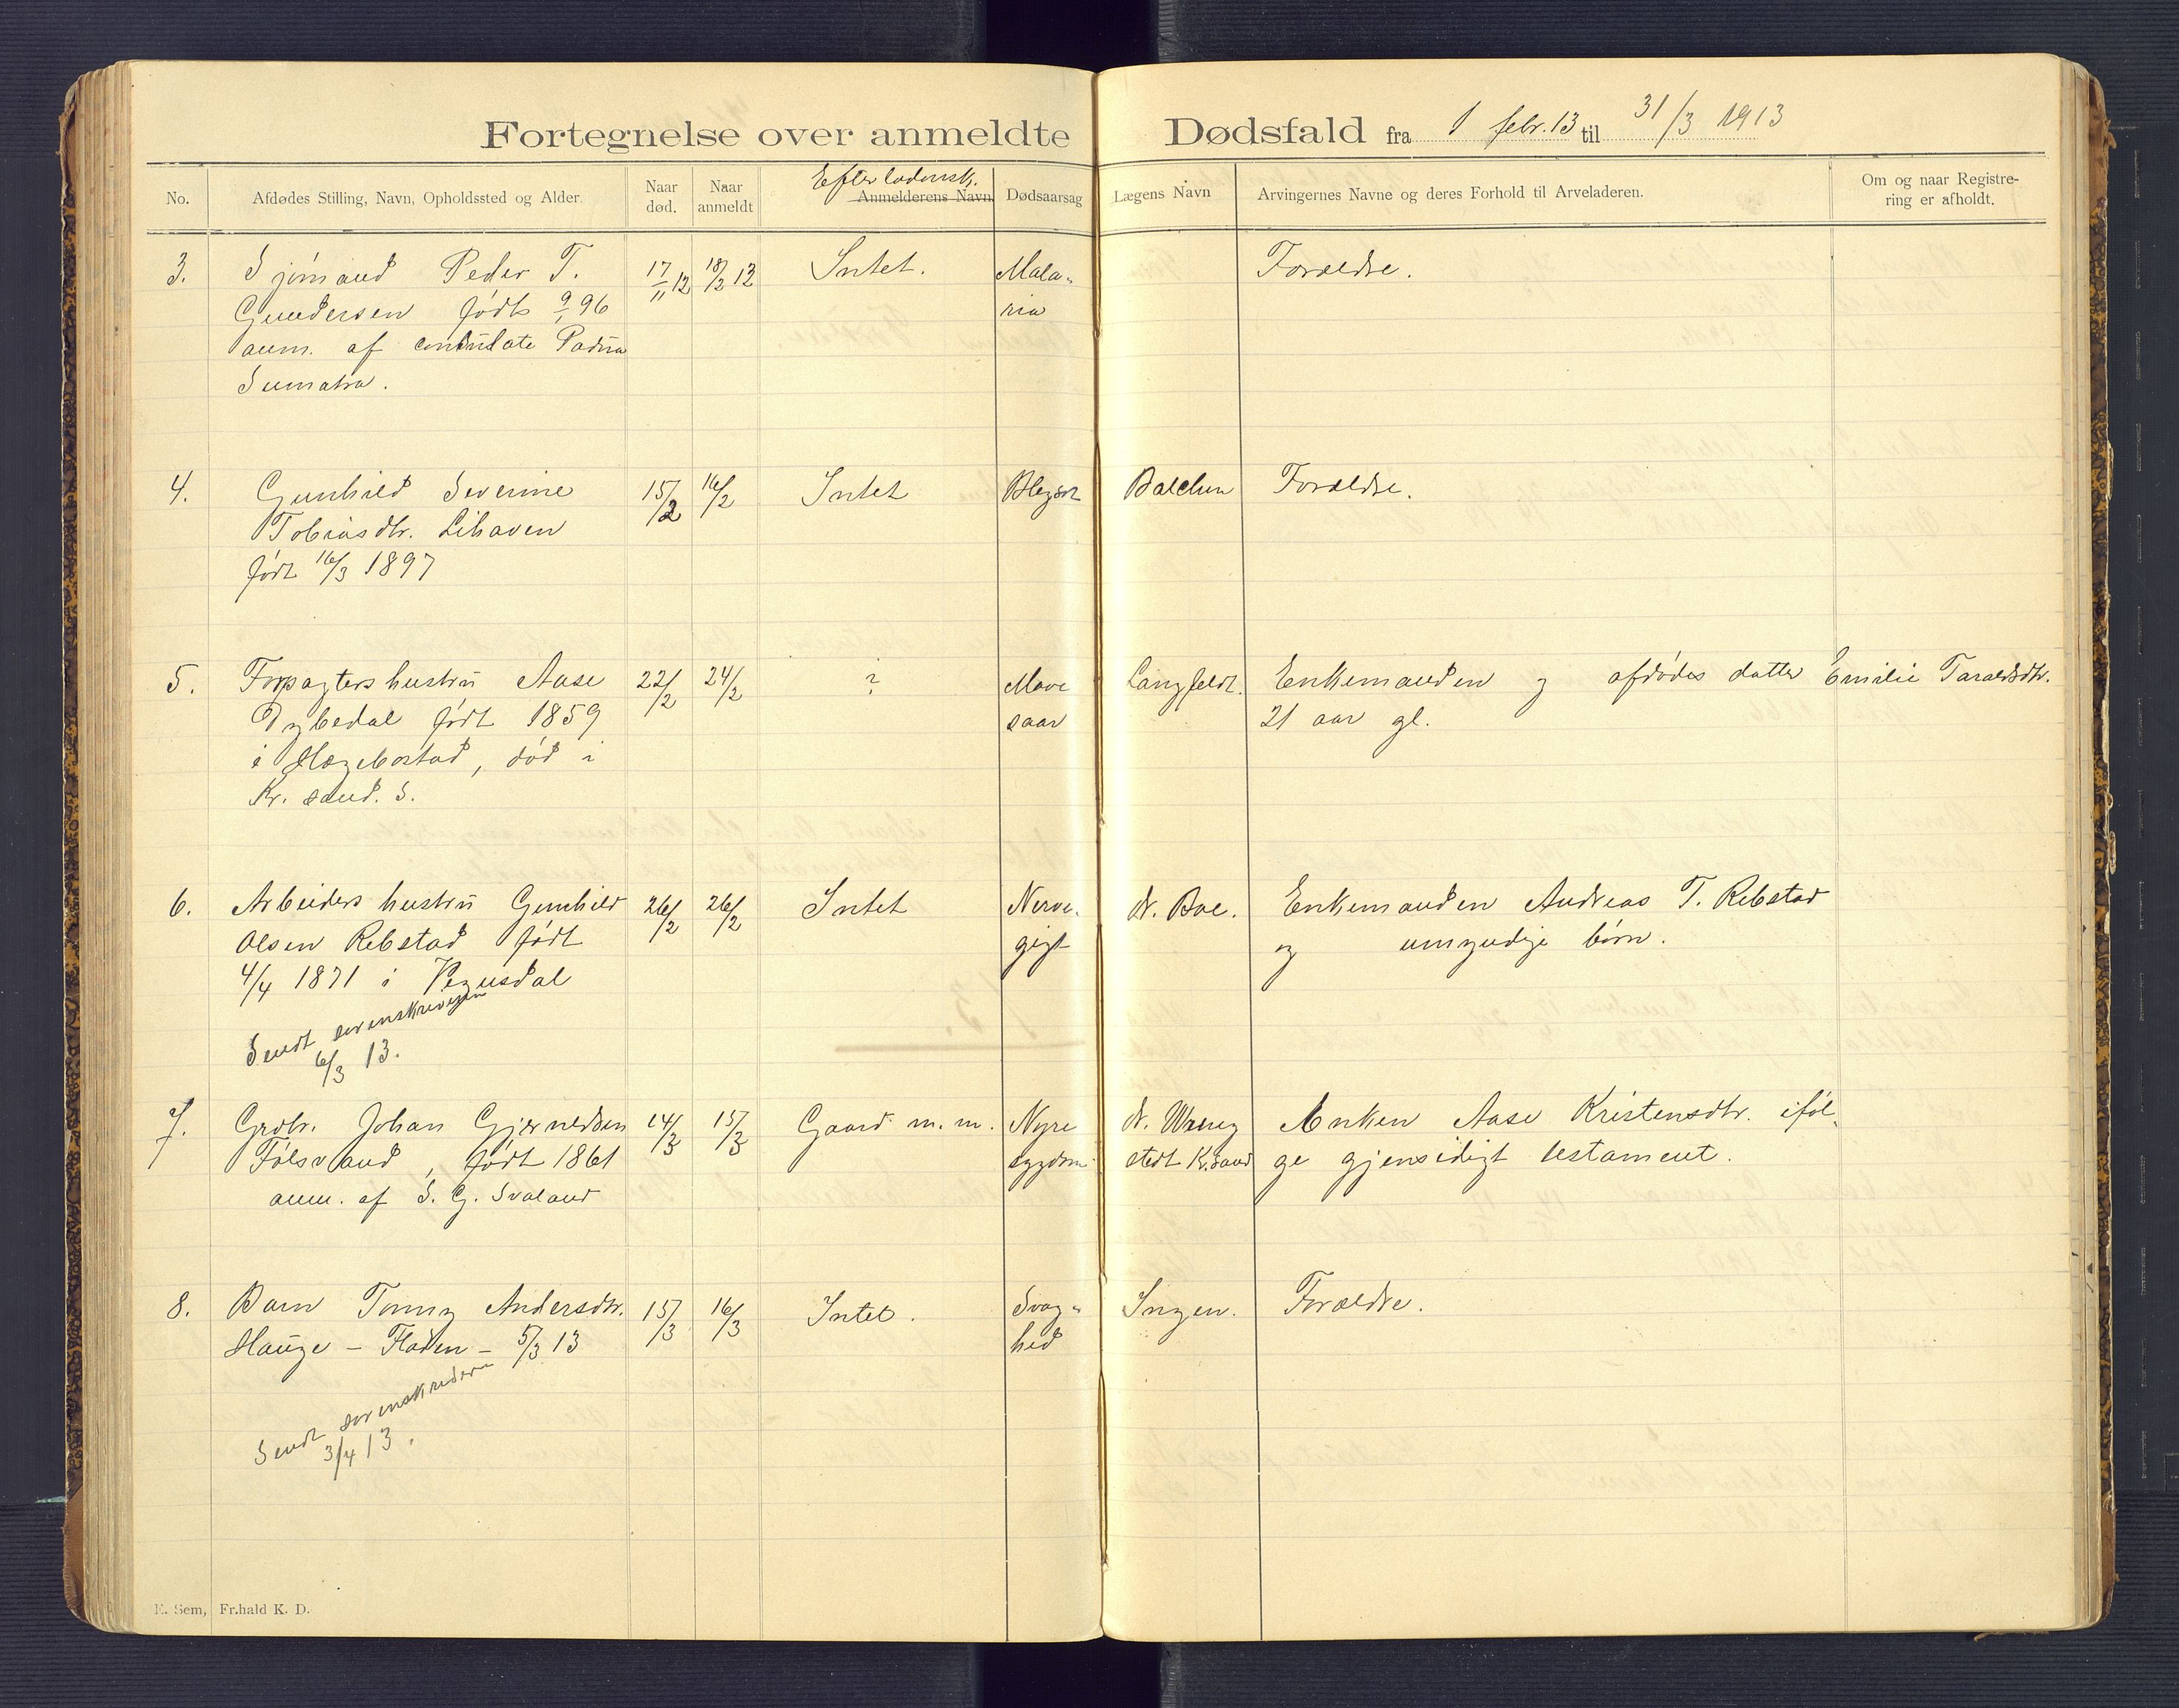 Fortegnelse over anmeldte Dødsfald fra 1 febr. 13 til 31/3 1913
No. Afdødes Stilling, Navn, Opholdssted og Alder. Naar død. Naar anmeldt Efterladensk. Anmelderens Navn. Dødsaarsag Lægens Navn Arvingernes Navne og deres Forhold til Arveladeren. Om og naar Registrering er afholdt.
3. Sjømand Peder T. 17/11 12 18/2 13 Intet. Mala- Forældre.
Gundersen født 9/1 96 ria
anm. af Padua
Sumatra.
4. Gunhild Severine 15/2 16/2 Intet Blegsot Balchen Forældre.
Tobiasdtr. Lihaven
født 16/3 1897
5. Forpagters hustru Aase 22/2 24/2 ? Mave Langfeldt. Enkemanden og afdødes datter Emilie Taraldsdtr.
Dybedal født 1859 saar 21 aar gl.
i Hægebostad, død i
Kr.sand. S.
6. Arbeiders hustru Gunhild 26/2 26/2 Intet Nerve- dr. Boe. Enkemanden Andreas T. Rebstad
Olsen Rebstad født gigt og umyndige børn.
4/4 1871 i Vegusdal
Sendt sorenskriveren
6/3 13.
7. Grdbr. Johan Gjeruldsen 14/3 15/3 Gaard m. m. Nyre dr. Wreng Enken Aase Kristensdtr. iføl-
Følsvand, født 1861 sygdom stedt Kr.sand ge gjensidigt testament.
anm. af S. G. Svaland
8. Barn Tomny Andersdtr. 15/3 16/3 Intet. Svag- Ingen. Forældre.
Hauge - Flaten - 5/3 13 hed
Sendt sorenskriveren
3/4 13.
E. Sem, Fr.hald K. D.